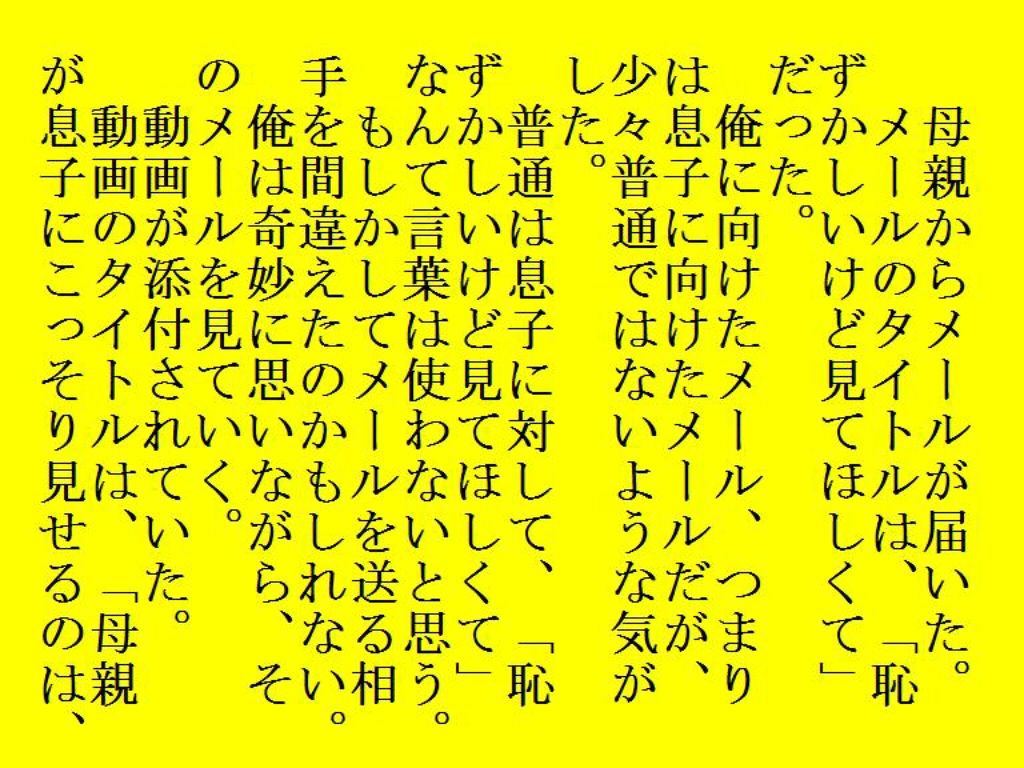 母親からメールが届いた。
メールのタイトルは、「恥
ずかしいけど見てほしくて」
だった。
俺に向けたメール、つまり
は息子に向けたメールだが、
少々普通ではないような気が
した。
普通は息子に対して、「恥
ずかしいけど見てほしくて」
なんて言葉は使わないと思う。
もしかしてメールを送る相
手を間違えたのかもしれない。
俺は奇妙に思いながら、そ
のメールを見ていく。
動画が添付されていた。
動画のタイトルは、「母親
が息子にこっそり見せるのは、